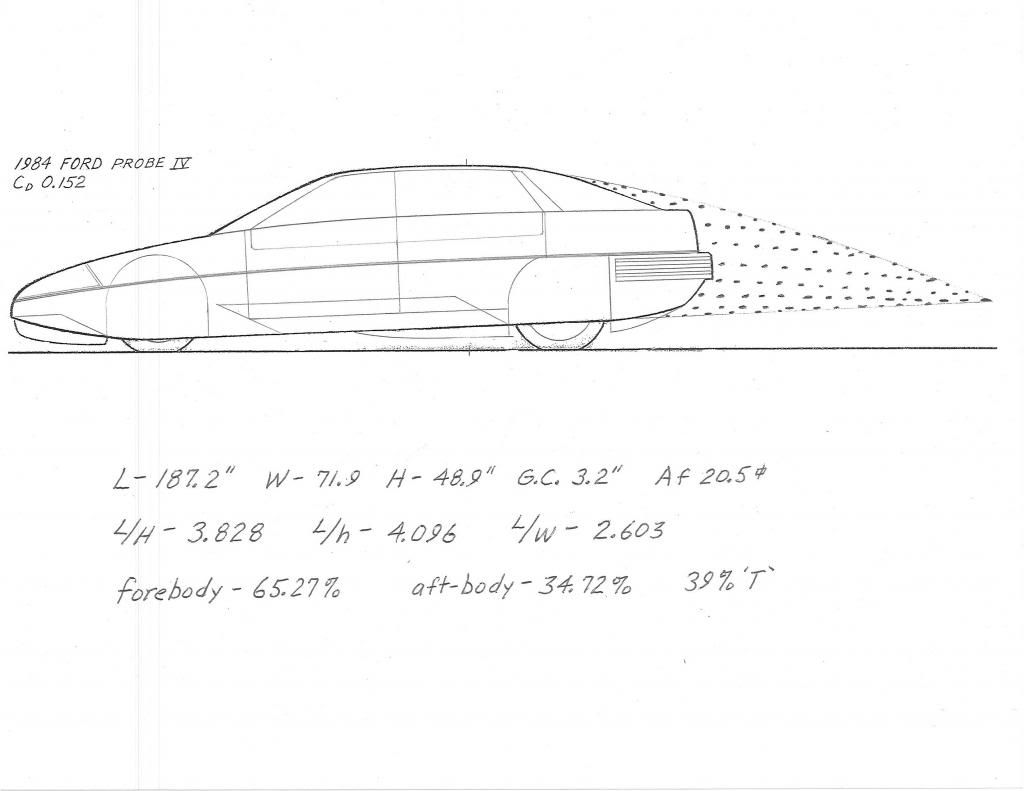 1984 FORD PROBE IV
CD 0.152
L- 187.2" W- 71.9 H- 48.9" G.C. 3.2" Af 20.5⏀
L/H - 3.828 L/h - 4.096 L/W - 2.603
forebody - 65.27% aft-body - 34.72% 39% 'T'